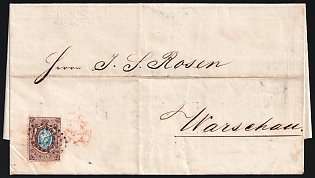 Herrn J. S. Rosen
Warschau.